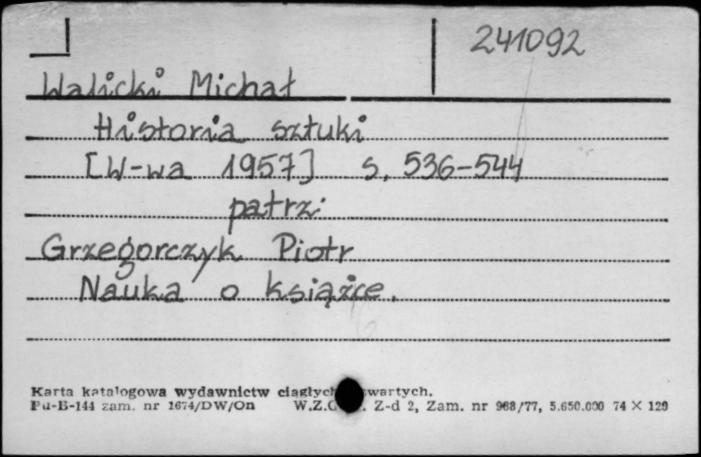 241092
Walicki Michał
Historia sztuki
[W-wa 1957] s. 536-544
patrz:
Grzegorczyk Piotr
Nauka o książce.
Karta katalogowa wydawnictw ciągłych
Pu-B-144 zam. nr 1674/DW/On W.Z.C Z-d 2, Zam. nr 968/77, 5.650.000 74 X 120